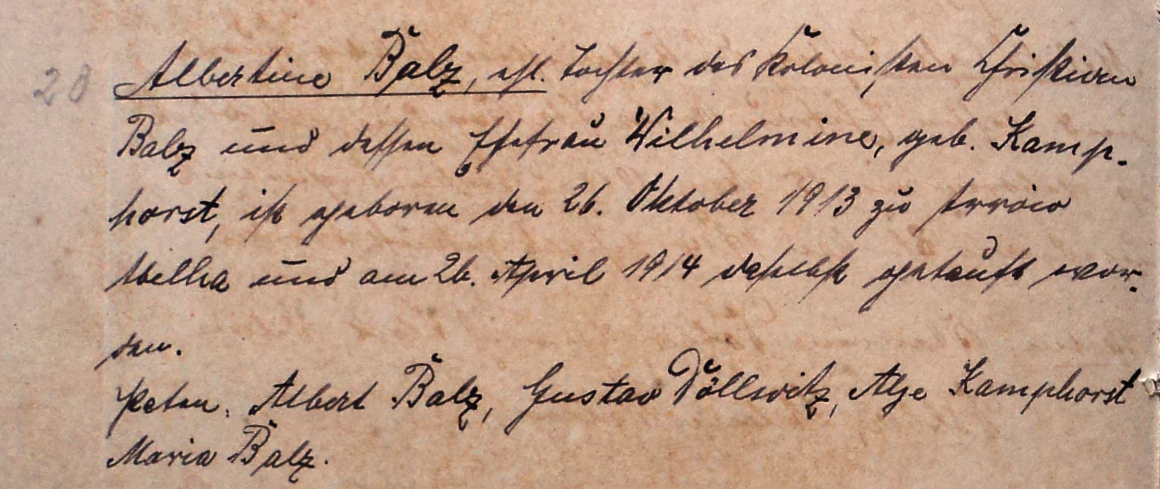 28 Albertine Balz, ehl. Tochter des Kolonisten Christian
Balz und dessen Ehefrau Wilhelmine, geb. Kamp-
horst, ist geboren den 26. Oktober 1913 zu Arroio
Velha und am 26. April 1914 daselbst getauft wor-
den.
Paten: Albert Balz, Gustav Döllwitz, Kamphorst
Maria Balz.